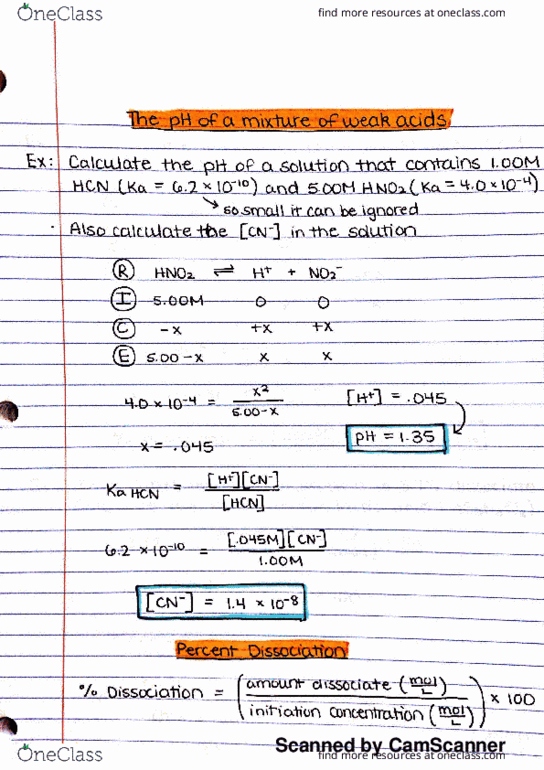 OneClass
find more resources at oneclass.com
The pH of a mixture of weak acids
Ex: Calculate the pH of a solution that contains 1.00M
HCN (Ka = 6.2 × 10⁻¹⁰) and 5.00M HNO₂ (Ka = 4.0 × 10⁻⁴)
↳ so small it can be ignored
· Also calculate the [CN⁻] in the solution
Ⓡ HNO₂ ⇌ H⁺ + NO₂⁻
Ⓘ 5.00M 0 0
Ⓒ -x +x +x
Ⓔ 5.00-x x x
4.0 × 10⁻⁴ = x² / 5.00-x [H⁺] = .045
x = .045 pH = 1.35
Ka HCN = [H⁺][CN⁻] / [HCN]
6.2 × 10⁻¹⁰ = [.045M][CN⁻] / 1.00M
[CN⁻] = 1.4 × 10⁻⁸
Percent Dissociation
% Dissociation = (amount dissociate (mol/L) / initiation concentration (mol/L)) × 100
Scanned by CamScanner
OneClass
find more resources at oneclass.com